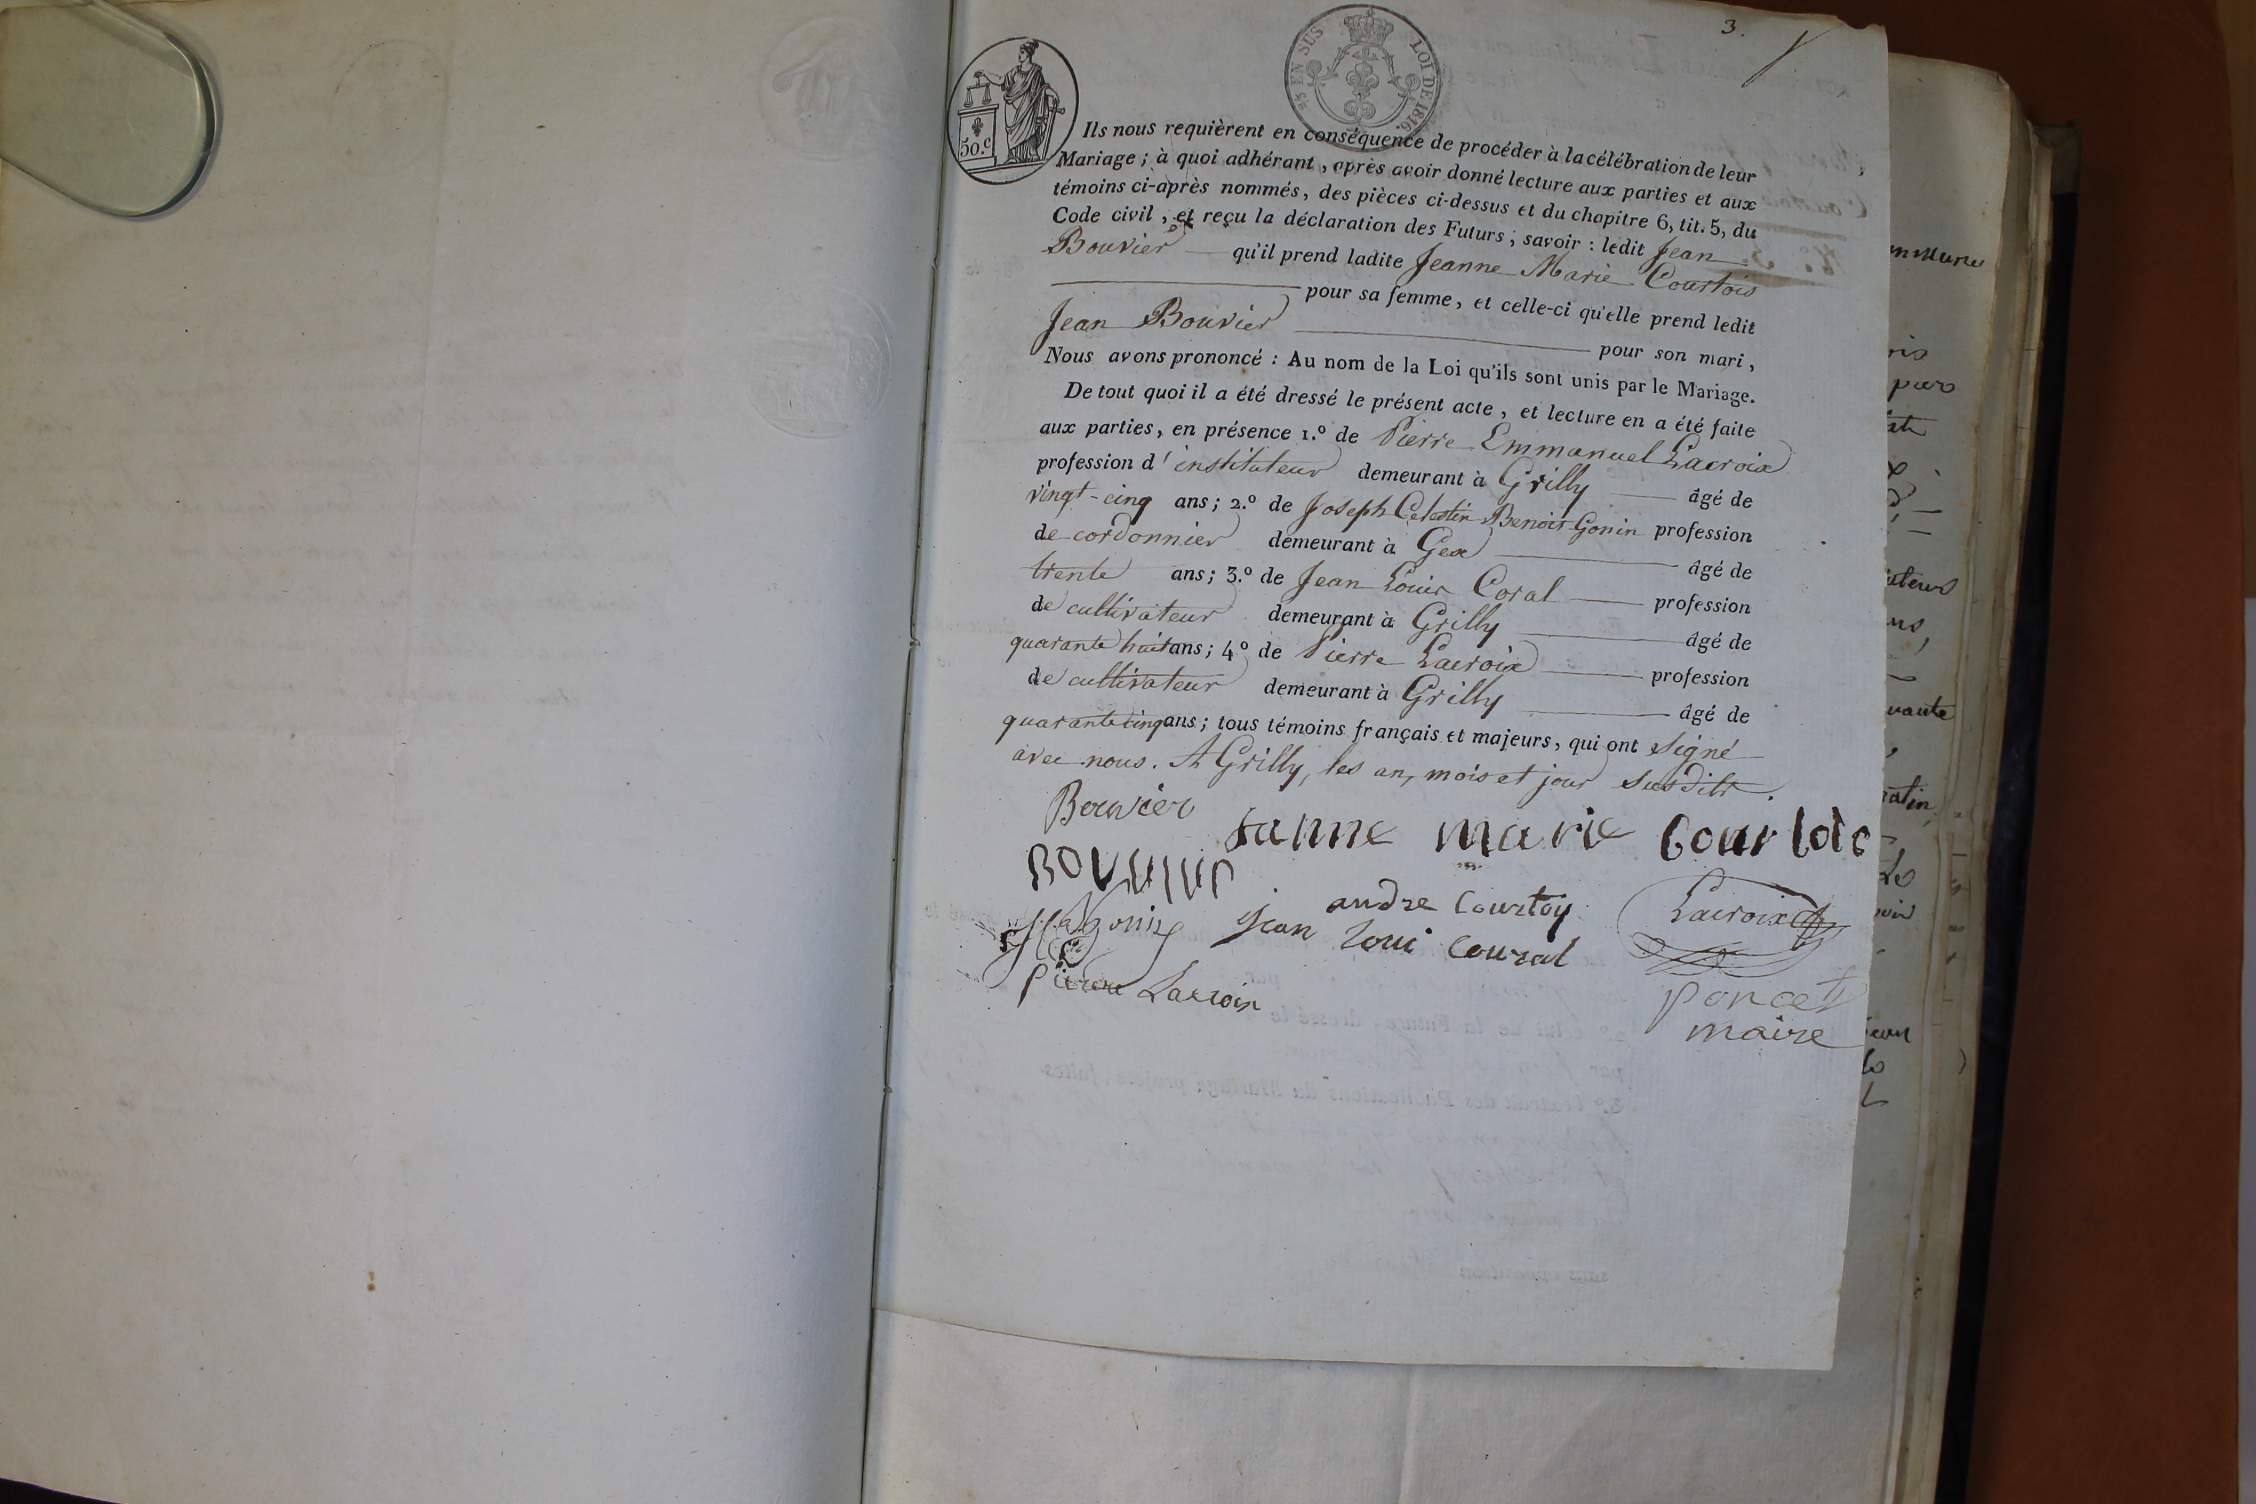 3.
25 EN SUS LOI DE 1816.
50.c
Ils nous requièrent en conséquence de procéder à la célébration de leur
Mariage ; à quoi adhérant , après avoir donné lecture aux parties et aux
témoins ci-après nommés, des pièces ci-dessus et du chapitre 6, tit. 5, du
Code civil , et reçu la déclaration des Futurs , savoir : ledit Jean
Bouvier qu'il prend ladite Jeanne Marie Courtois
pour sa femme, et celle-ci qu'elle prend ledit
Jean Bouvier pour son mari ,
Nous avons prononcé : Au nom de la Loi qu'ils sont unis par le Mariage.
De tout quoi il a été dressé le présent acte , et lecture en a été faite
aux parties, en présence 1.º de Pierre Emmanuel Lacroix
profession d'instituteur demeurant à Grilly âgé de
vingt-cinq ans ; 2.º de Joseph Celestin Benoit Gonin profession
de cordonnier demeurant à Gex âgé de
trente ans ; 3.º de Jean Louis Coral profession
de cultivateur demeurant à Grilly âgé de
quarante huit ans ; 4.º de Pierre Lacroix profession
de cultivateur demeurant à Grilly âgé de
quarante cinq ans ; tous témoins français et majeurs, qui ont signé
avec nous. A Grilly, les an, mois et jour susdits.
Bouvier
janne marie Courtois
andre Courtoy
Lacroix
jean loui Coural
pierre Lacroix
poncet
maire